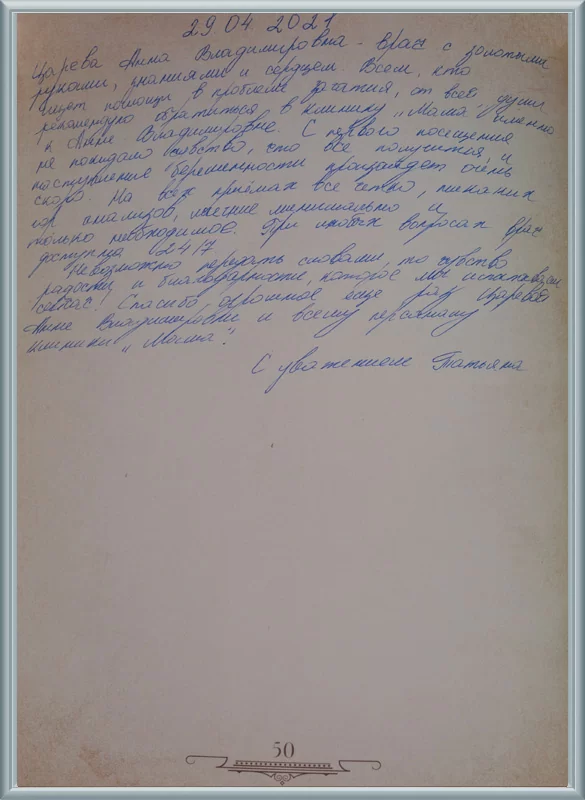 29.04.2021
Царева Анна Владимировна - врач с золотыми
руками, знаниями и сердцем. Всем, кто
ищет помощи в проблеме зачатия, от всей души
рекомендую обратиться в клинику „Мама" именно
к Анне Владимировне. С первого посещения
не покидало чувство, что всё получится и
наступление беременности произойдет очень
скоро. На всех приёмах все четко, никаких
гор анализов, лечение минимально и
только необходимое. При любых вопросах врач
доступна 24/7
Невозможно передать словами, то чувство
радости и благодарности, которое мы испытываем
сейчас! Спасибо огромное еще раз Царевой
Анне Владимировне и всему персоналу
клиники „Мама".
С уважением Татьяна
50